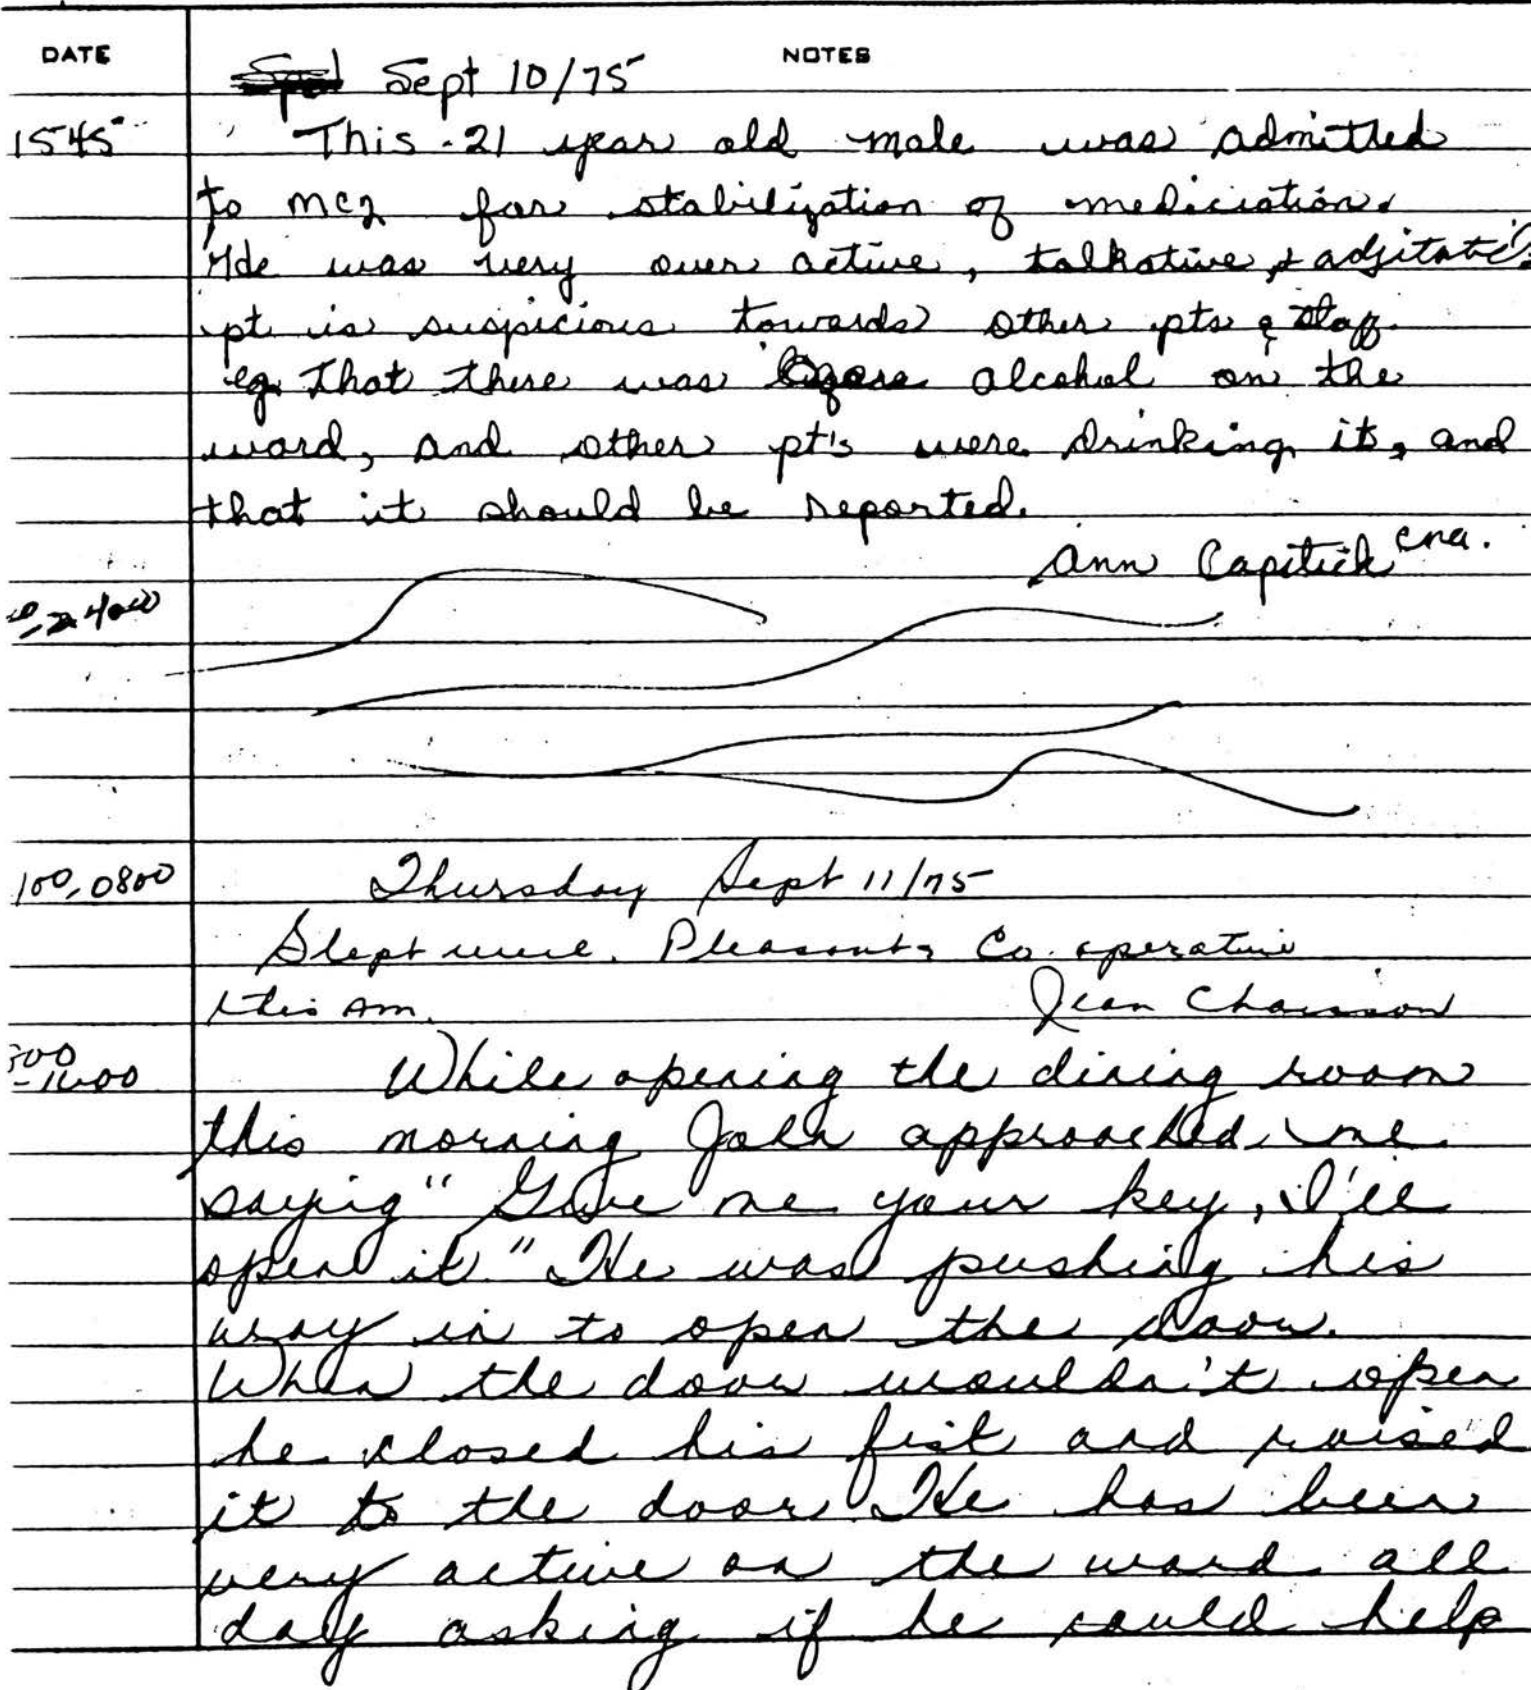 DATE NOTES
Sept 10/75
1545 This 21 year old male was admitted
to mc2 for stabilization of mediciation.
He was very over active, talkative, & adjitated.
pt is suspicious towards other pts & staff.
eg. That there was alcohol on the
ward, and other pt's were drinking it, and
that it should be reported.
Ann Capstick cna.
2400
100, 0800 Thursday Sept 11/75
Slept well. Pleasant & Co.operative
this am. Jean Chaisson
-1600 While opening the dining room
this morning John approached me
saying " Give me your key, I'll
open it " He was pushing his
way in to open the door.
When the door wouldn't open
he closed his fist and raised
it to the door. He has been
very active on the ward all
day asking if he could help